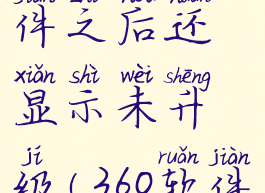 件之后还
xiǎn shì wèi shēng
显示未升
jí ruǎn jiàn
级(360软件